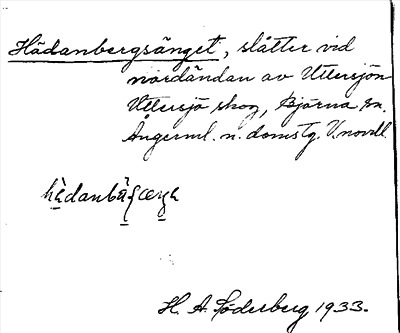 Hädanbergsänget, slåtter vid
nordändan av Uttersjön
Uttersjö skog, Björna sn.
Ångerml. n. domstg. V.norrl.
H. A. Söderberg 1933.